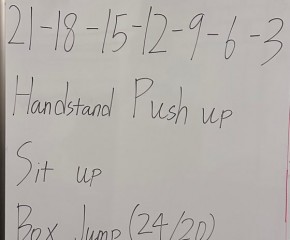 21-18-15-12-9-6-3
Handstand Push up
Sit up
Box Jump (24/20)